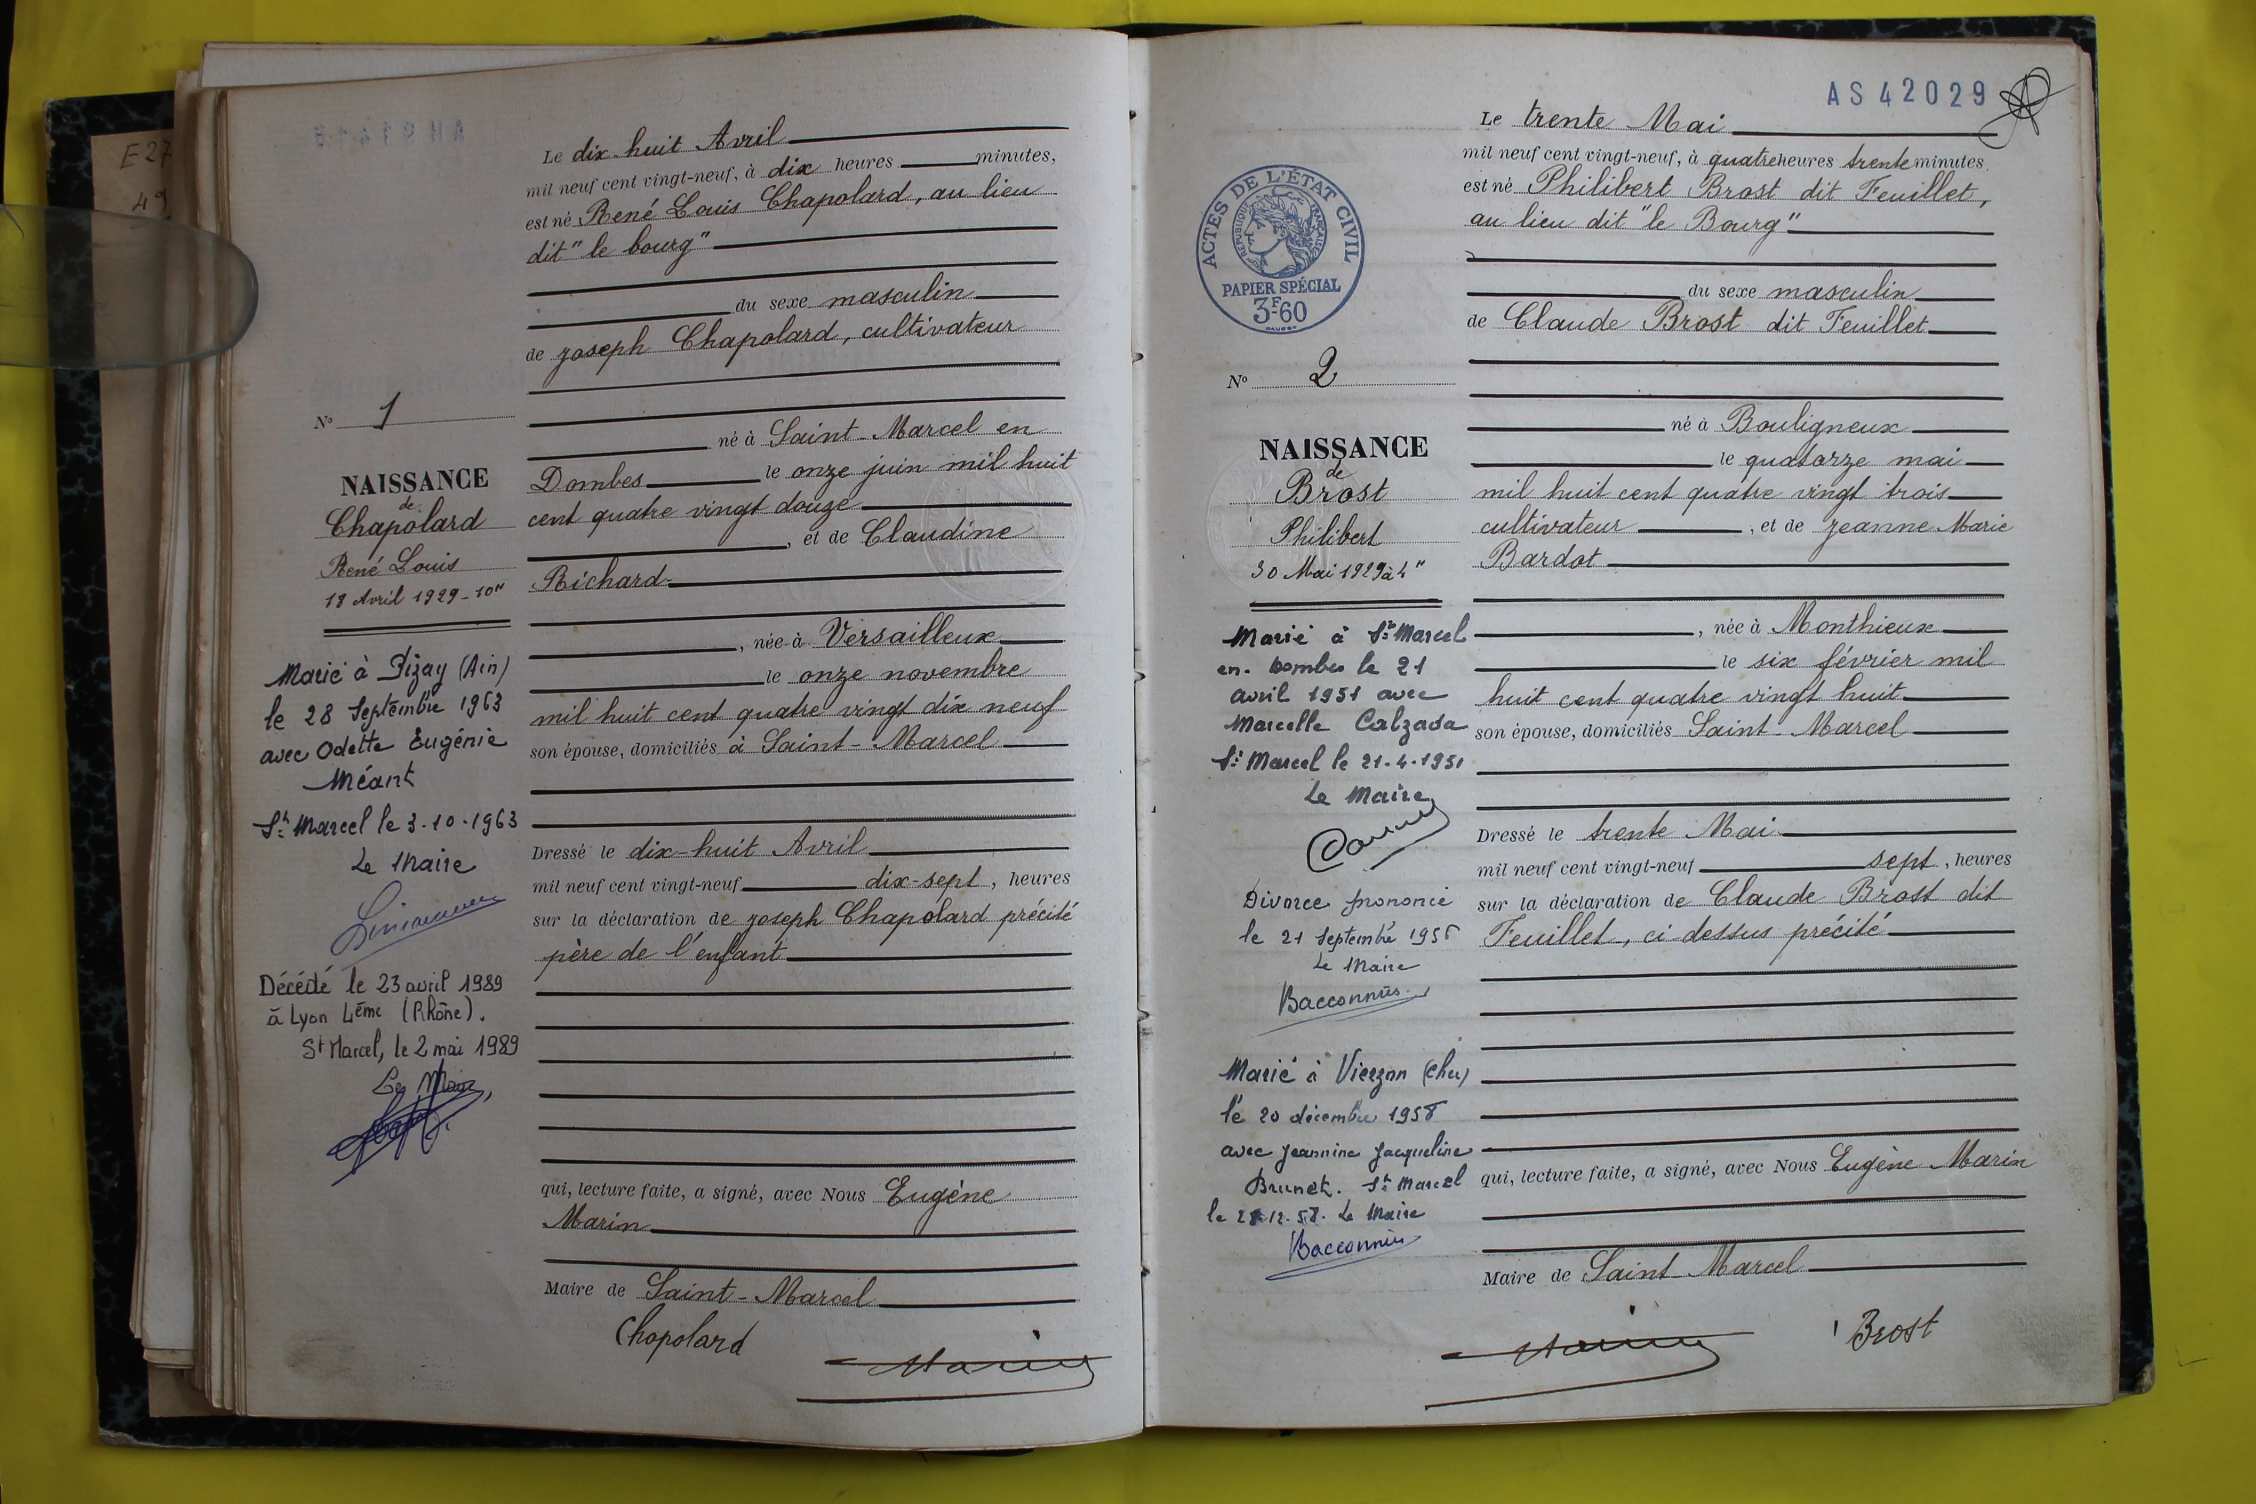 E27
49
N° 1
NAISSANCE
de
Chapolard
René Louis
18 Avril 1929 - 10h
Marié à Pizay (Ain)
le 28 Septembre 1963
avec Odette Eugénie
Méant
St Marcel le 3-10-1963
Le Maire
Décédé le 23 avril 1989
à Lyon 4ème (Rhône).
St Marcel, le 2 mai 1989
Le Maire,
Le dix-huit Avril
mil neuf cent vingt-neuf, à dix heures minutes,
est né René Louis Chapolard, au lieu
dit "le bourg"
du sexe masculin
de Joseph Chapolard, cultivateur
né à Saint-Marcel en
Dombes le onze juin mil huit
cent quatre vingt douze
, et de Claudine
Richard
, née à Versailleux
le onze novembre
mil huit cent quatre vingt dix neuf
son épouse, domiciliés à Saint-Marcel
Dressé le dix-huit Avril
mil neuf cent vingt-neuf dix-sept, heures
sur la déclaration de Joseph Chapolard précité
père de l'enfant
qui, lecture faite, a signé, avec Nous Eugène
Marin
Maire de Saint-Marcel
Chapolard
Marin
AS42029
ACTES DE L'ÉTAT CIVIL
RÉPUBLIQUE FRANÇAISE
PAPIER SPÉCIAL
3F60
N° 2
NAISSANCE
de
Brost
Philibert
30 Mai 1929 à 4h
Marié à St Marcel
en Dombes le 21
avril 1951 avec
Marcelle Calzada
St Marcel le 21-4-1951
Le Maire
Divorce prononcé
le 21 Septembre 1956
Le Maire
Bacconnus
Marié à Vierzon (Cher)
le 20 décembre 1958
avec Jeannine Jacqueline
Brunet. St Marcel
le 12-58. Le Maire
Bacconnus
Le trente Mai
mil neuf cent vingt-neuf, à quatre heures trente minutes
est né Philibert Brost dit Feuillet,
au lieu dit "le Bourg"
du sexe masculin
de Claude Brost dit Feuillet
né à Bouligneux
le quatorze mai
mil huit cent quatre vingt trois
cultivateur, et de Jeanne Marie
Bardot
, née à Monthieux
le six février mil
huit cent quatre vingt huit
son épouse, domiciliés Saint-Marcel
Dressé le trente Mai
mil neuf cent vingt-neuf sept, heures
sur la déclaration de Claude Brost dit
Feuillet, ci dessus précité
qui, lecture faite, a signé, avec Nous Eugène Marin
Maire de Saint-Marcel
Marin
Brost